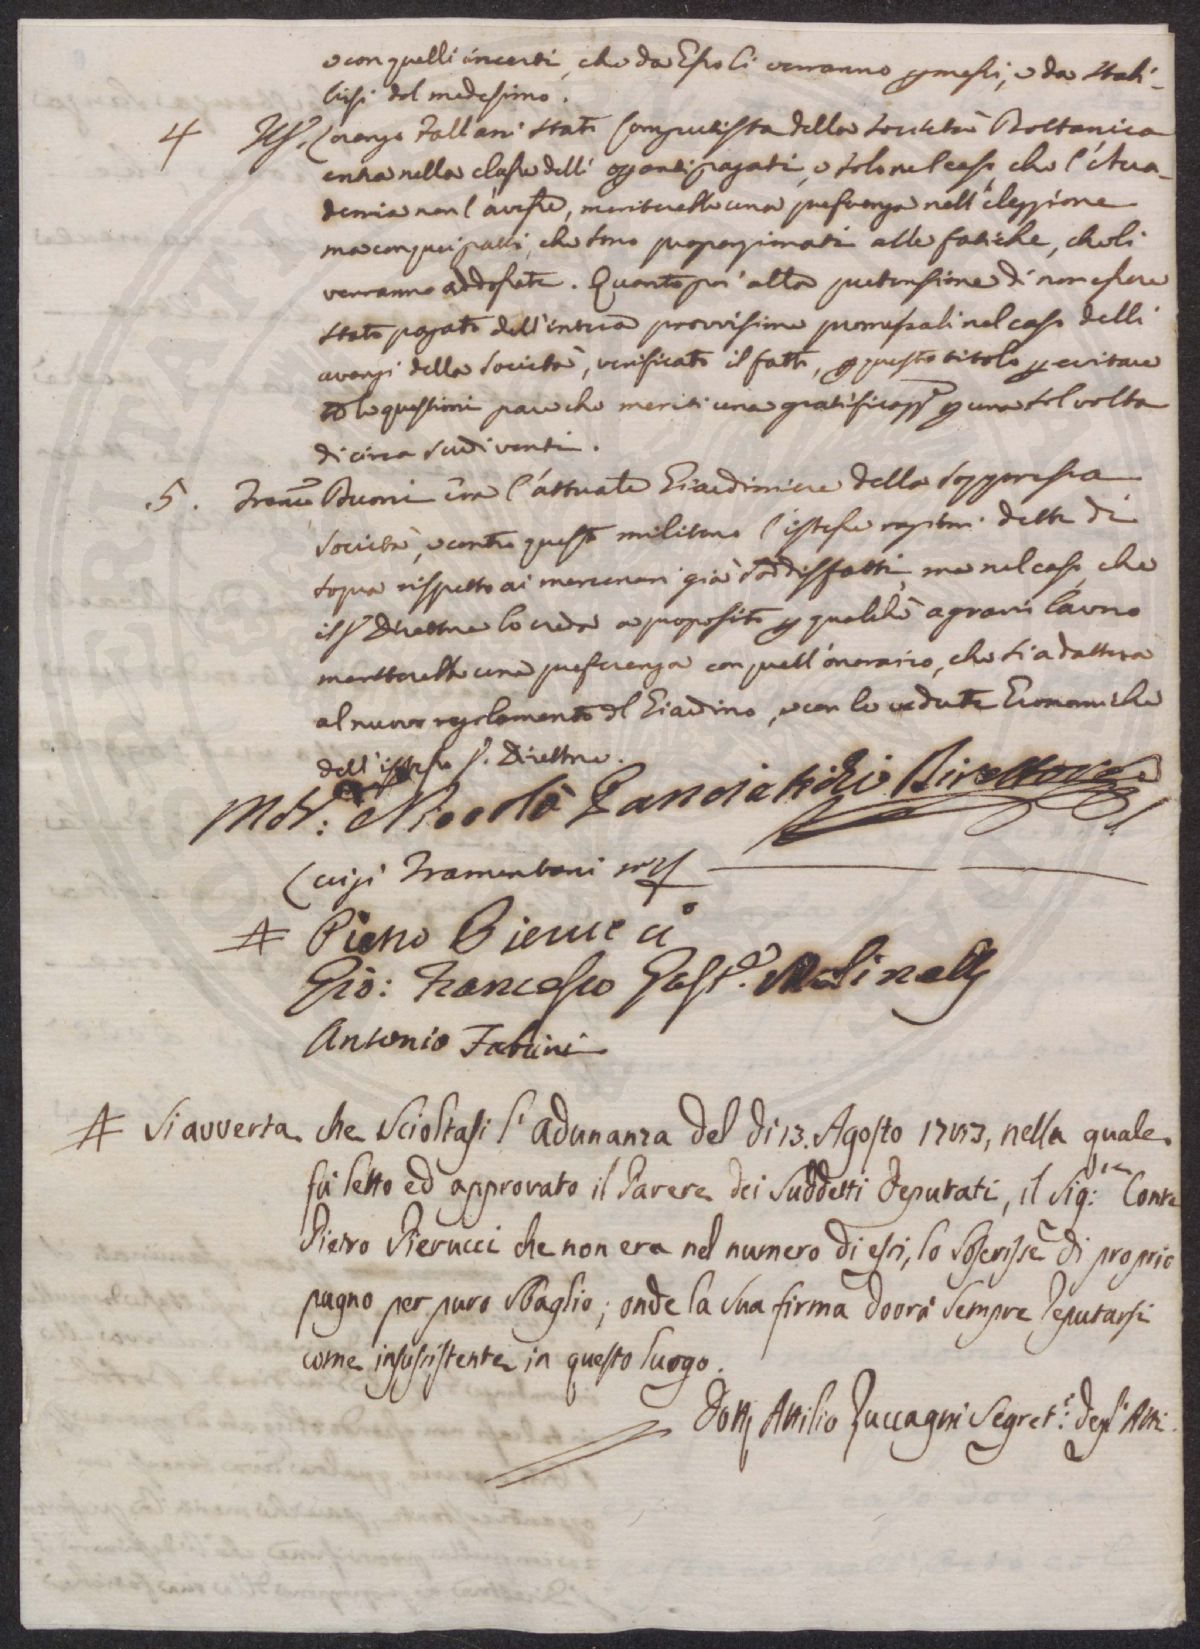 e con quelli incerti, che da Essoli verranno permessi, e da stabi-
lirsi dal medesimo.
4 Il S. Lorenzo Fallani stato Computista della Società Bottanica
entra nella classe delli oganti pagati, e solo nel caso, che l'Acca-
demia non l'avesse, meriterebbe una preferenza nell'elezzione
ma con quei patti, che sono proporzionati alle fatiche, che li
verranno addossate. Quanto poi alla pretensione di non essere
stato pagato dell'intera provvisione promessali nel caso delli
avanzi della Società, verificato il fatto, per questo titolo per evitare
le questioni pare che meriti una gratificazz.e per una sol volta
di circa scudi venti.
5. Franc.o Buoni era l'attuale Giardiniere della soppressa
società, e contro questo militano l'istesse ragioni dette di
sopra rispetto ai mercenari già soddisfatti, ma nel caso, che
il S. Direttore lo creda a proposito per qualche agrario lavoro
meriterebbe una preferenza con quell'onorario, che si adatterà
al nuovo regolamento del Giardino, e con le vedute Economiche
dell'istesso S. Direttore.
Niccolò Panciatichi Direttore
Luigi Tramontani
Pietro Pierucci
Gio: Francesco Molinelli
Antonio Fabrini
Si avverta che scioltasi l'adunanza del dì 13. Agosto 1783, nella quale
fù letto ed approvato il Parere dei suddetti Deputati, il Sig:re Conte
Pietro Pierucci che non era nel numero di essi, lo soscrisse di proprio
pugno per puro sbaglio; onde la sua firma dovrà sempre reputarsi
come insussistente in questo luogo.
Dott. Attilio Zuccagni Segret.o degl'Atti.